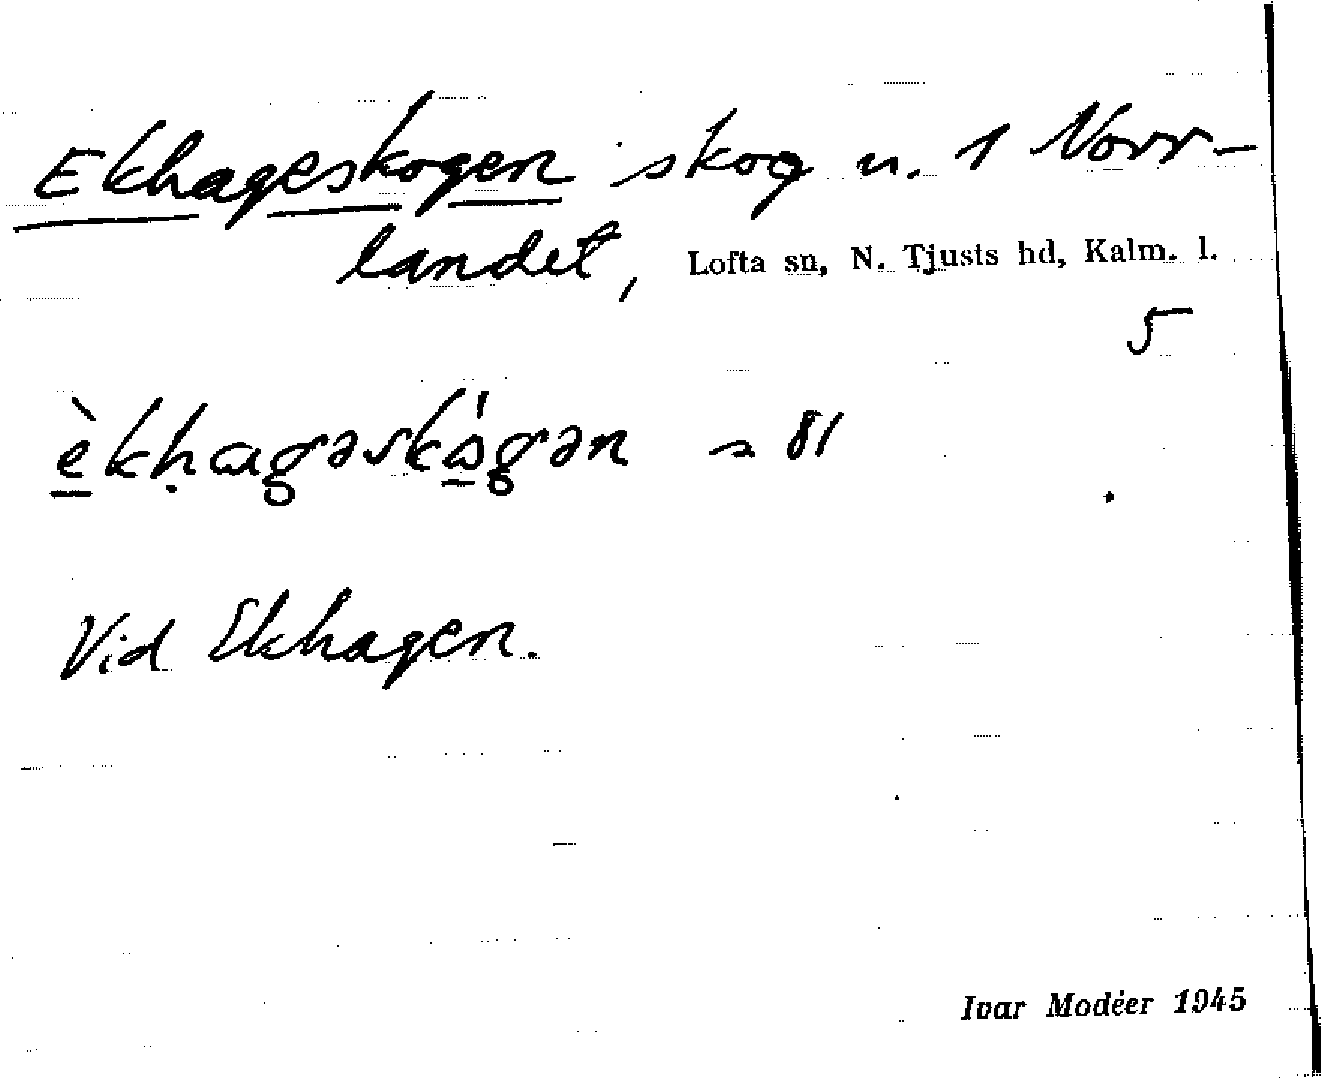 Ekhageskogen skog u. 1 Norr-
landet, Lofta sn, N. Tjusts hd, Kalm. l.
5
èkḥagəskågən 81
Vid Ekhagen.
Ivar Modéer 1945